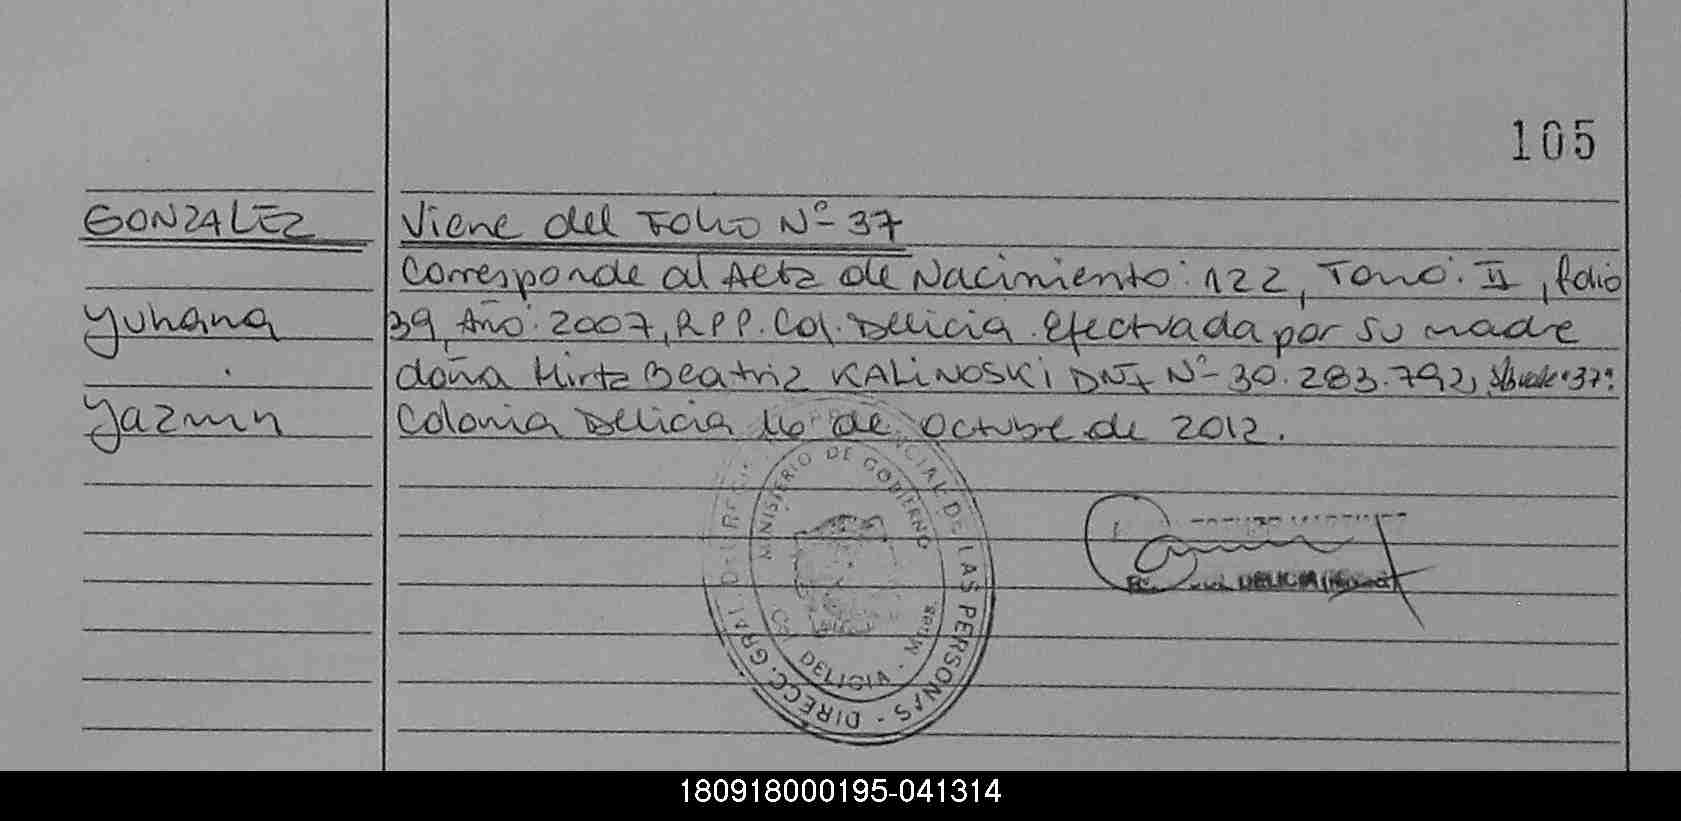 105
GONZALEZ
Yuhana
Yazmin
Viene del Folio Nº 37
Corresponde al Acta de Nacimiento: 122, Tomo: II, folio
39, Año: 2007, R.P.P. Col. Delicia. Efectuada por su madre
doña Mirta Beatriz KALINOSKI DNI Nº 30.283.792, S/B vale "37".
Colonia Delicia 16 de Octubre de 2012.
DIRECC. GRAL. DEL REG. CIAL DE LAS PERSONAS -
MINISTERIO DE GOBIERNO
DELICIA - Mnes.
DELICIA
180918000195-041314